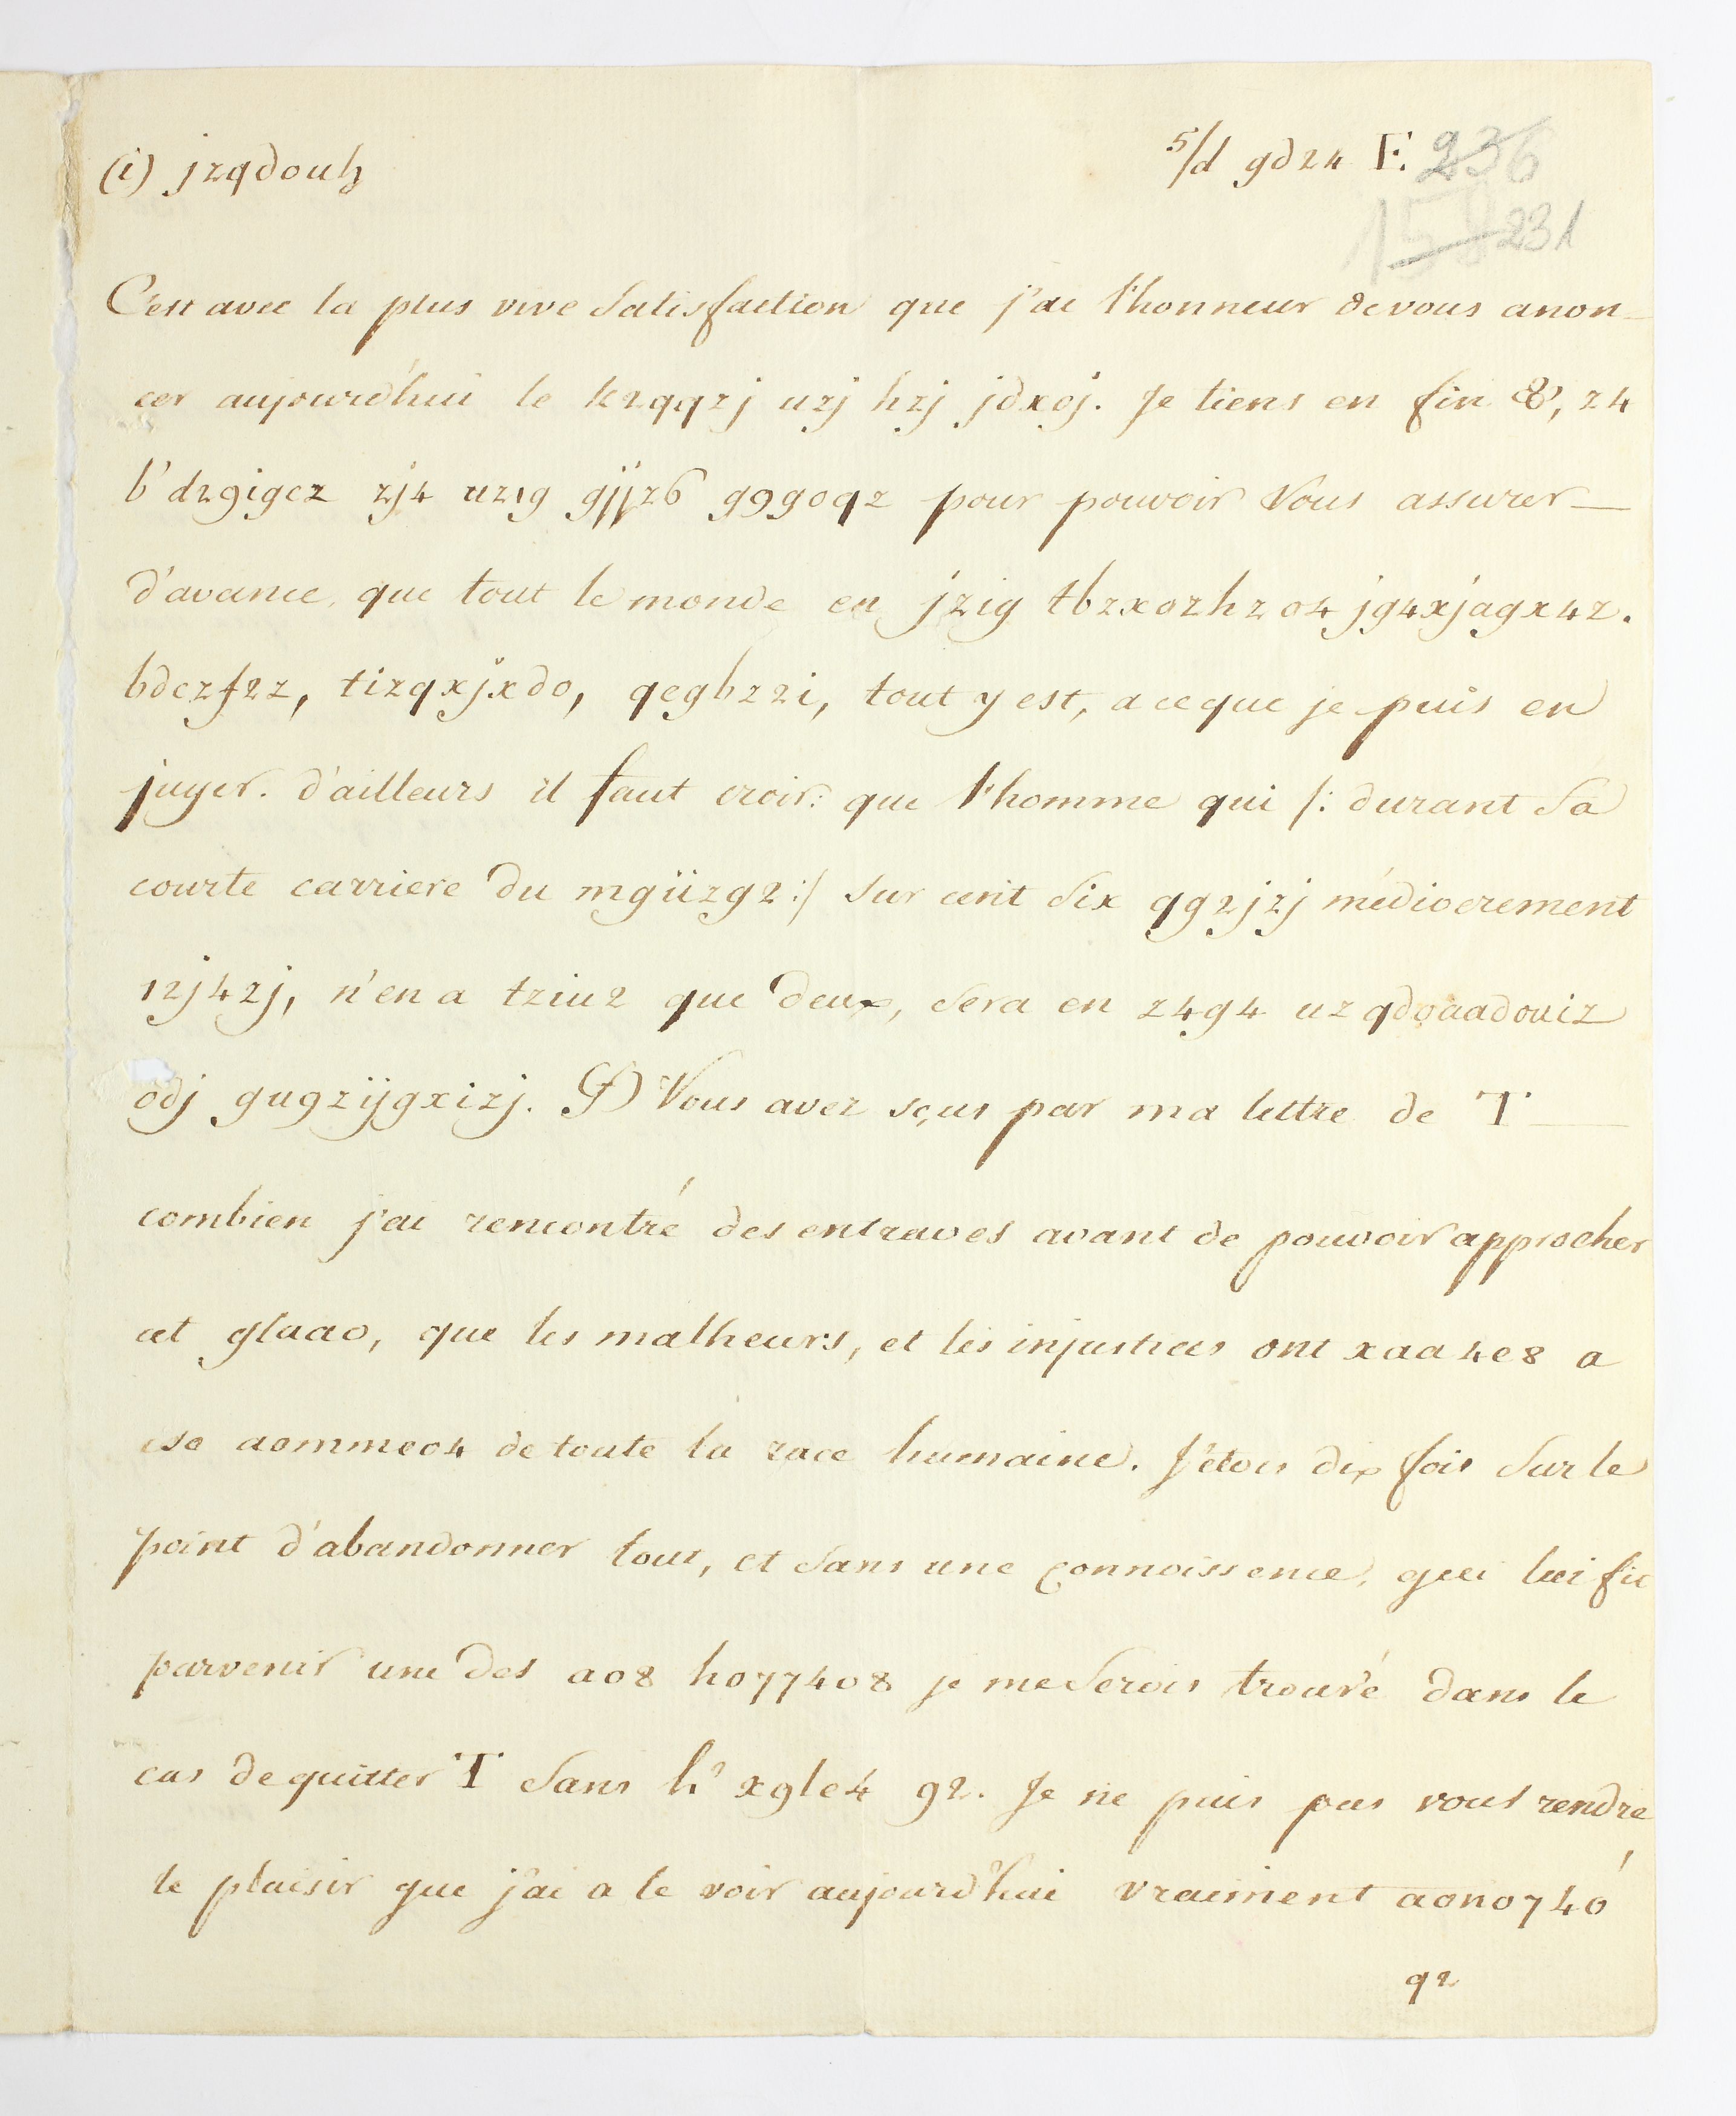 (i) jzqdouh
5/d gd24 F. 236
158 231
C'est avec la plus vive satisfaction que j'ai l'honneur de vous anon-
cer aujourd'hui le k2qqzj uzj hzj jdxoj. Je tiens en fin &, z4
b'd29igcz zj4 uz1g gjjz6 g9goqz pour pouvoir vous assurer —
d'avance, que tout le monde en jzig tbzxozhzo4 jg4xjagx4z.
bdczf2z, tizqxjxdo, qegbz2i, tout y est, a ce que je puis en
juger. d'ailleurs il faut croir: que l'homme qui /: durant sa
courte carriere du mgiizg2 :/ sur cent six qg2jzj médiocrement
12j42j, n'en a tziu2 que deux, sera en z4g4 uz qdoaadouiz
odj gugzijgxizj. (f) Vous avez sçus par ma lettre de T —
combien j'ai rencontré des entraves avant de pouvoir approcher
cet glaao, que les malheurs, et les injustices ont xaa4e8 a
se aommeo4 de toute la race humaine. J'étois dix fois sur le
point d'abandonner tout, et sans une connoissence, qui lui fit
parvenir une des ao8 ho77408 je me serois trouvé dans le
cas de quitter T sans h' xgle4 g2. Je ne puis pas vous rendre
le plaisir que j'ai a le voir aujourd'hui vraiment aono740
q2